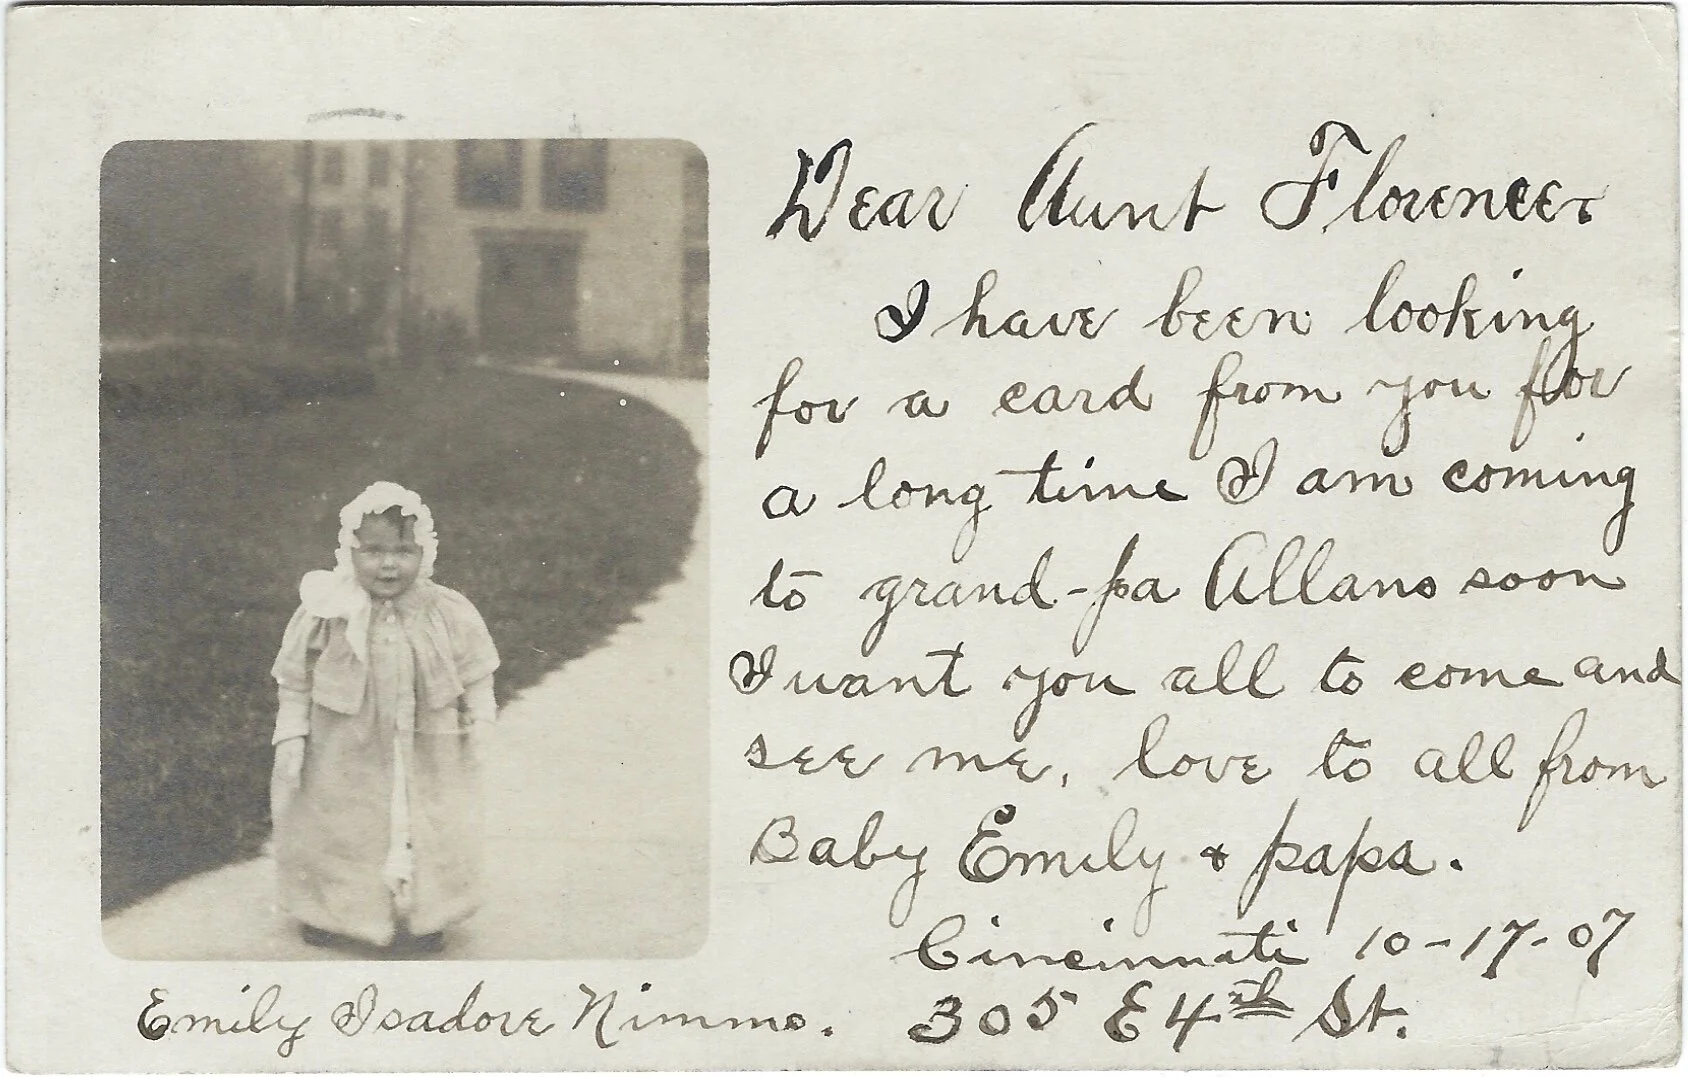 Dear Aunt Florence
I have been looking
for a card from you for
a long time I am coming
to grand-pa Allans soon
I want you all to come and
see me, love to all from
Baby Emily & papa.
Cincinnati 10-17-07
305 E 4th St.
Emily Isadore Nimmo.